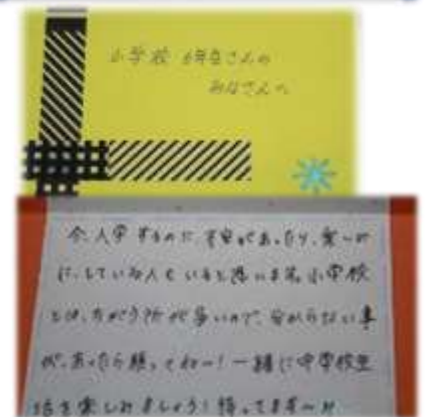 小学校 6年生さんの
みなさんへ
今、入学するのに、不安があったり、楽しみ
に、している人もいると思います。小学校
とは、ちがう所が多いので、分からない事
が、あったら頼ってね〜！一緒に中学校生
活を楽しみましょう！待ってます〜!!